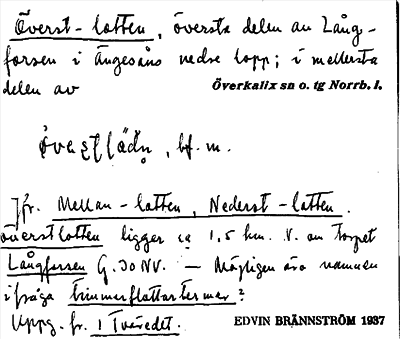 Överst-latten, översta delen av Lång-
forsen i Ängesåns nedre lopp; i mellersta
delen av Överkalix sn o. tg Norrb. l.
bf. m.
Jfr. Mellan-latten, Nederst-latten.
Överstlatten ligger ca 1,5 km. V. om torpet
Långforsen G. 30 NV. — Möjligen äro namnen
ifråga timmerflottartermer?
Uppg. fr. 1 Tväredet. EDVIN BRÄNNSTRÖM 1937